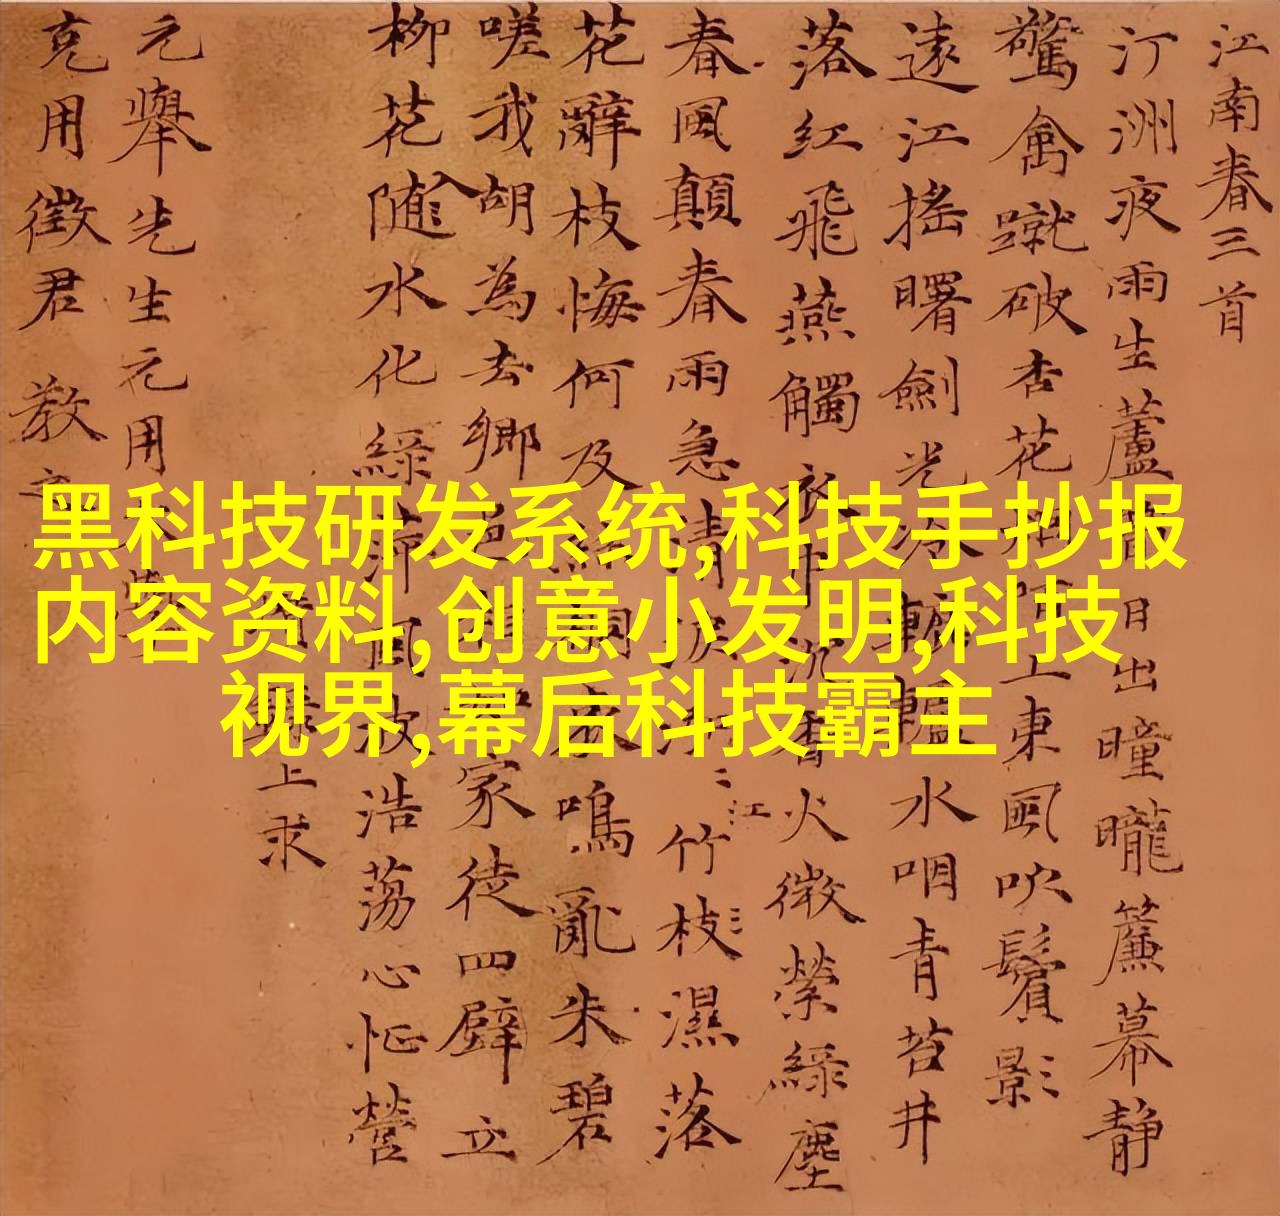 江南春三首
汀洲夜雨生蘆日出曈曨簾幕静
驚禽蹴破杏花陌上東風吹鬢影
遠江搖曙劍光水咽青苔井
落紅飛燕觸衣巾香火微縈綠塵
春風顛春雨急清淚江竹枝濕落
花辭枝悔何及鳴亂朱碧
嗟我胡為去鄉家徒四壁立
柳花入随水化綠萍風波浩蕩心怔營
上求
元舉先生元用
克用徵君 教之
黑科技研发系统,科技手抄报
内容资料,创意小发明,科技
视界,幕后科技霸主